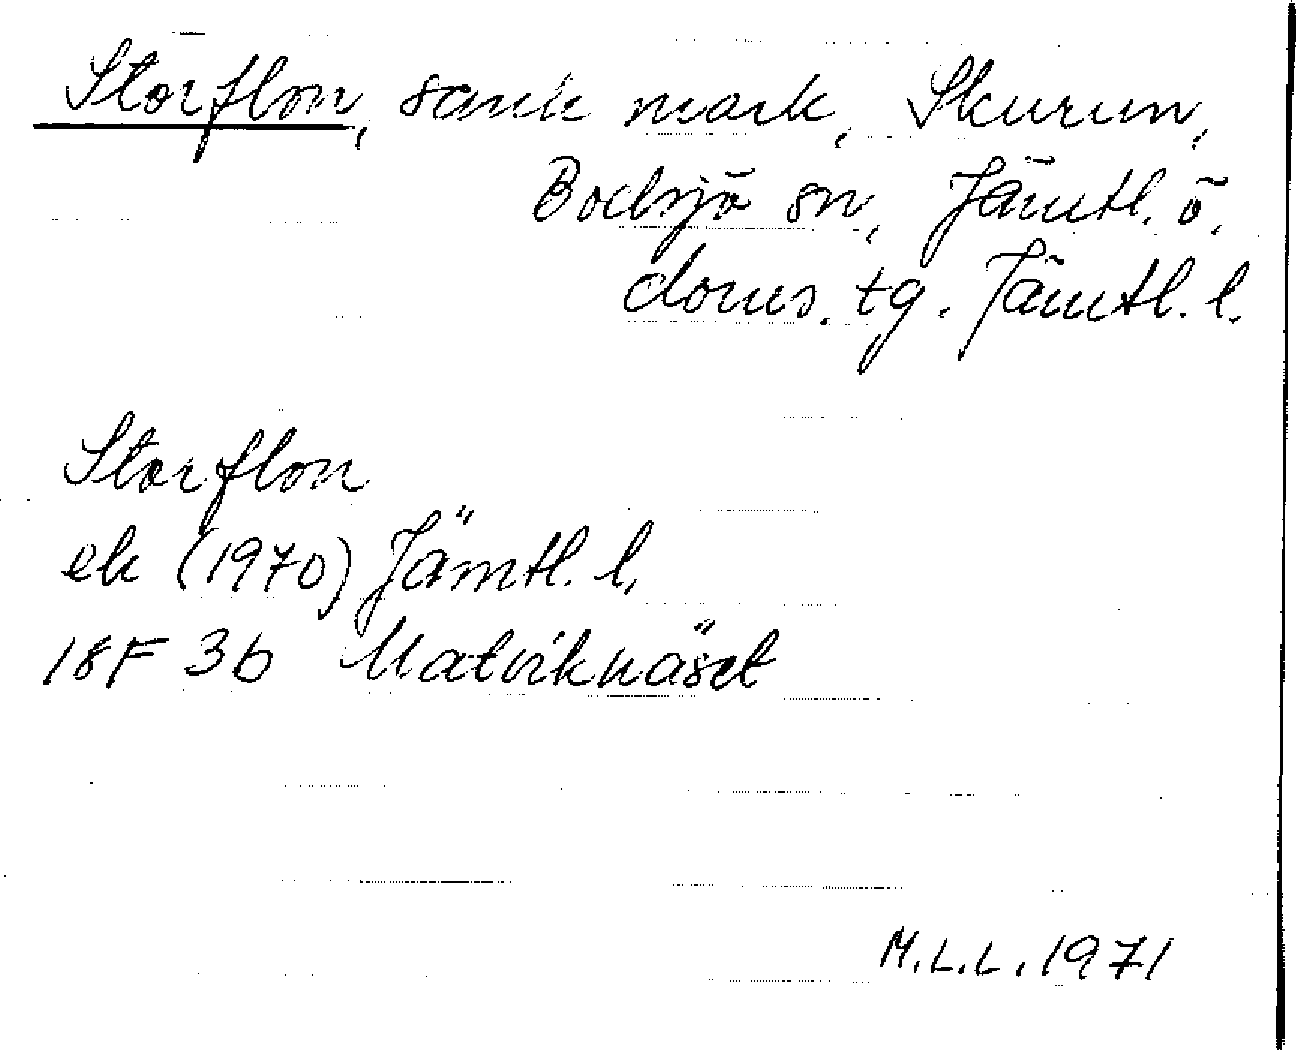 Storflon, sank mark, Skurun,
Bodsjö sn, Jämtl. ö.
doms. tg. Jämtl. l.
Storflon
ek (1970) Jämtl. l.
18F 3b Matviknäset
M.L.L. 1971